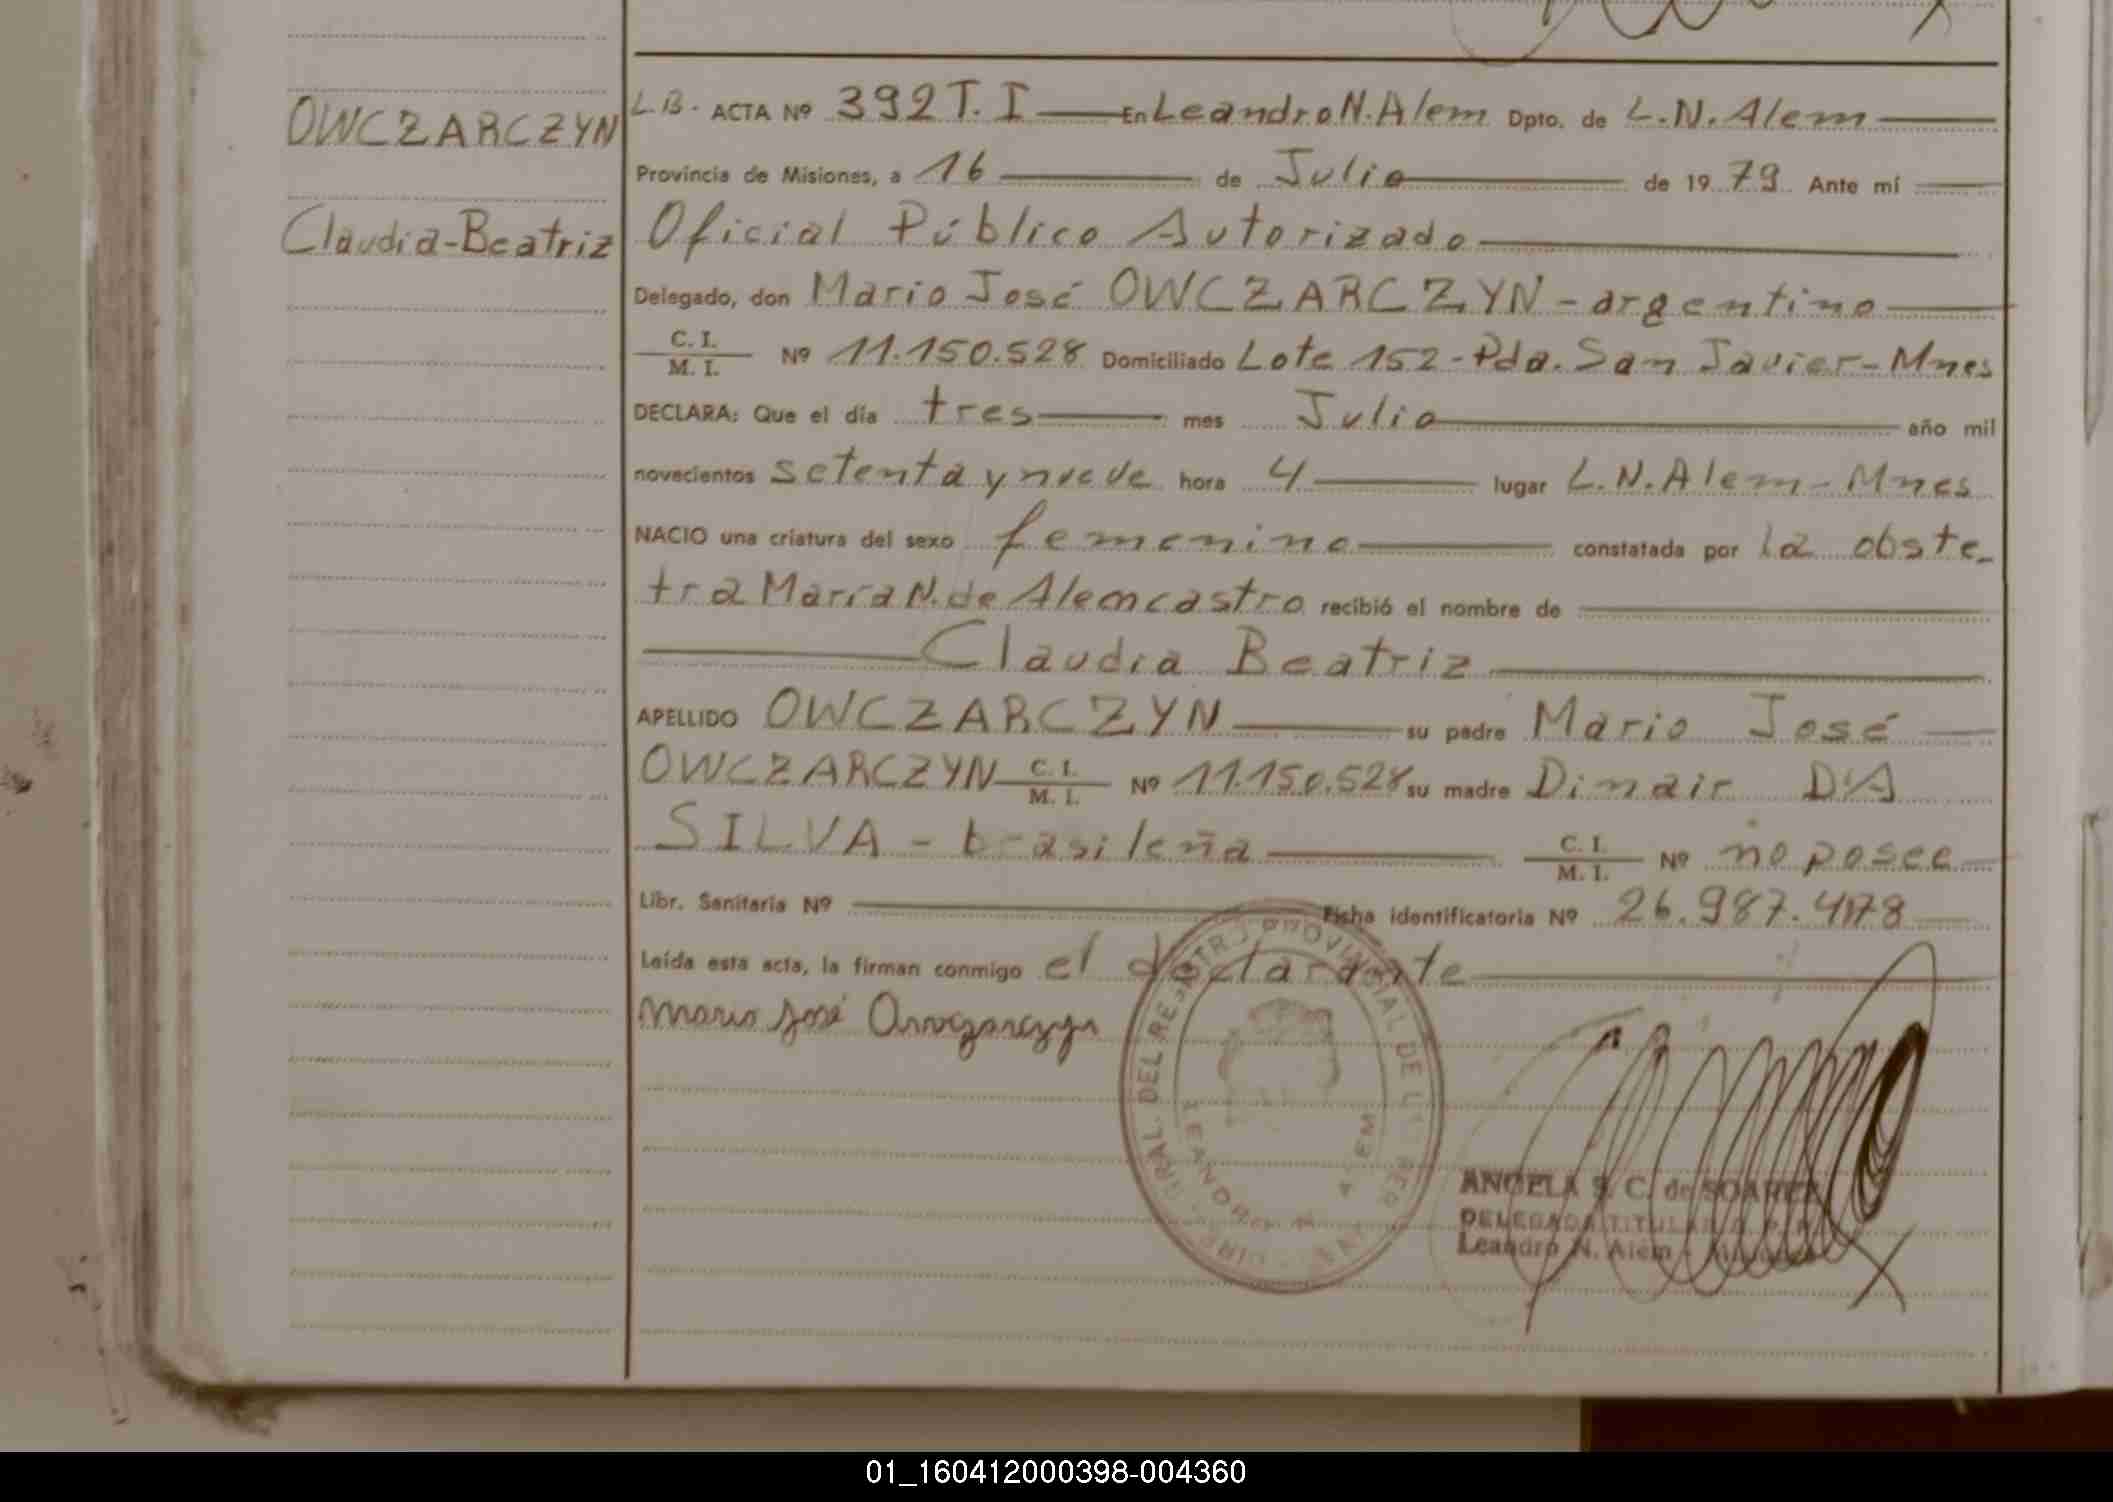 OWCZARCZYN
Claudia-Beatriz
L.B. ACTA Nº 392 T. I En Leandro N. Alem Dpto. de L.N. Alem
Provincia de Misiones, a 16 de Julio de 19 79 Ante mí
Oficial Público Autorizado
Delegado, don Mario José OWCZARCZYN - argentino
C. I.
M. I. Nº 11.150.528 Domiciliado Lote 152 - Pda. San Javier - Mnes
DECLARA: Que el día tres mes Julio año mil
novecientos setenta y nueve hora 4 lugar L.N. Alem - Mnes
NACIO una criatura del sexo femenino constatada por la obste-
tra María N. de Alemcastro recibió el nombre de
Claudia Beatriz
APELLIDO OWCZARCZYN su padre Mario José
OWCZARCZYN C. I.
M. I. Nº 11.150.528 su madre Dimair DA
SILVA - brasileña C. I.
M. I. Nº no posee
Libr. Sanitaria Nº Ficha identificatoria Nº 26.987.478
Leída esta acta, la firman conmigo el declarante
Mario José Owczarczyn
GRAL. DEL REGISTRO PROVINCIAL DE L
LEANDRO N. ALEM
ANGELA S. C. de SOAREZ
DELEGADA TITULAR
Leandro N. Alem - Misiones
01_160412000398-004360